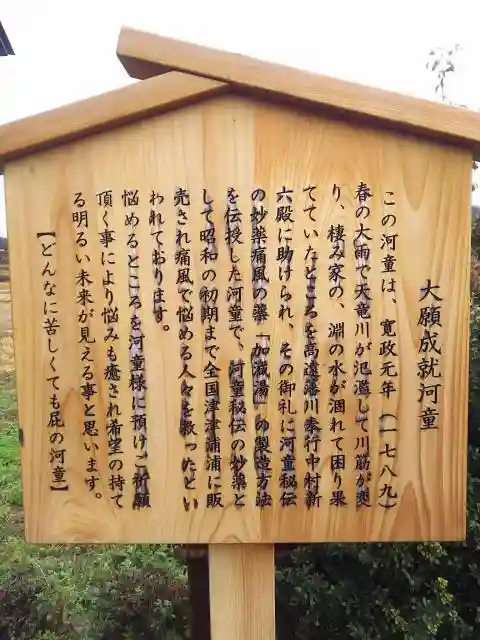 大願成就河童
この河童は、寛政元年(一七八九)
春の大雨で天竜川が氾濫して川筋が変
り、棲み家の、淵の水が涸れて困り果
てていたところを高遠藩川奉行中村新
六殿に助けられ、その御礼に河童秘伝
の妙薬痛風の薬「加減湯」の製造方法
を伝授した河童で、河童秘伝の妙薬と
して昭和の初期まで全国津津浦浦に販
売され痛風で悩める人々を救ったとい
われております。
悩めるところを河童様に預けご祈願
頂く事により悩みも癒され希望の持て
る明るい未来が見える事と思います。
【どんなに苦しくても屁の河童】